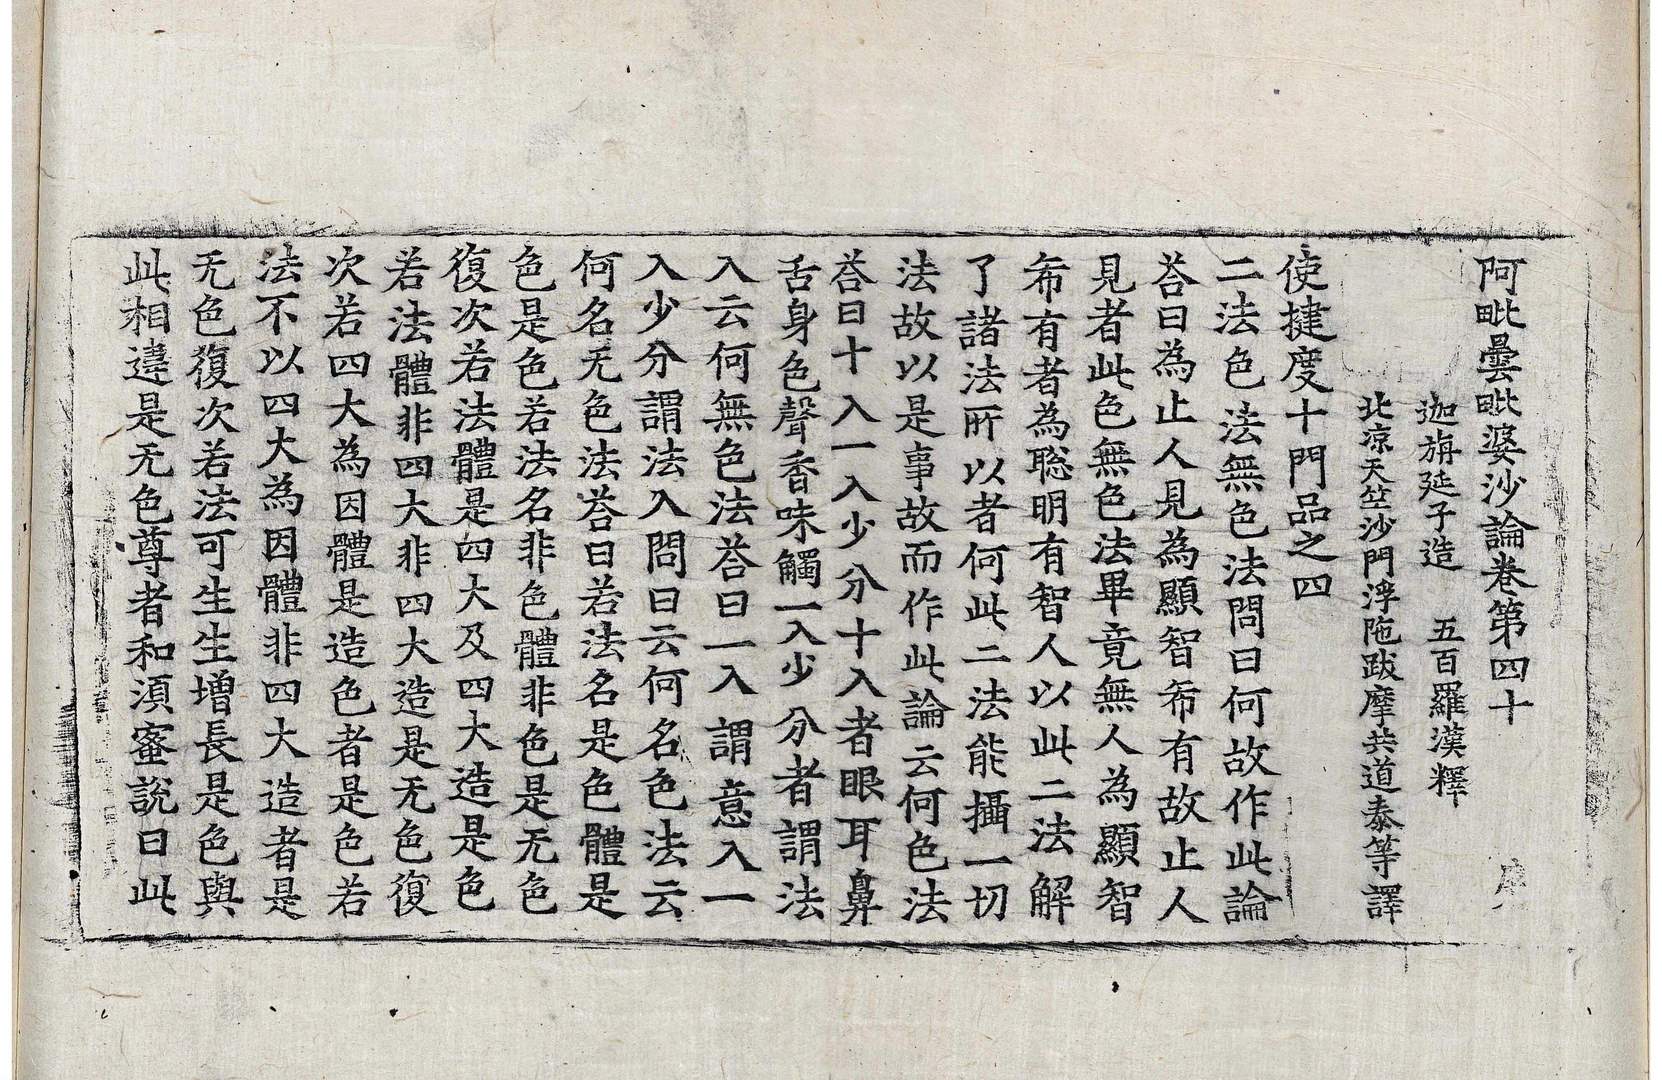 阿毗曇毗婆沙論卷第四十
迦旃延子造　五百羅漢釋
北凉天竺沙門浮陁跋摩共道泰等譯
使揵度十門品之四
二法色法無色法問曰何故作此論
荅曰為止人見為顯智希有故止人
見者此色無色法畢竟無人為顯智
希有者為聡明有智人以此二法解
了諸法所以者何此二法能攝一切
法故以是事故而作此論云何色法
荅曰十入一入少分十入者眼耳鼻
舌身色聲香味觸一入少分者謂法
入云何無色法荅曰一入謂意入一
入少分謂法入問曰云何名色法云
何名无色法荅曰若法名是色體是
色是色若法名非色體非色是无色
復次若法體是四大及四大造是色
若法體非四大非四大造是无色復
次若四大為因體是造色者是色若
法不以四大為因體非四大造者是
无色復次若法可生生增長是色與
此相違是无色尊者和湏蜜說曰此